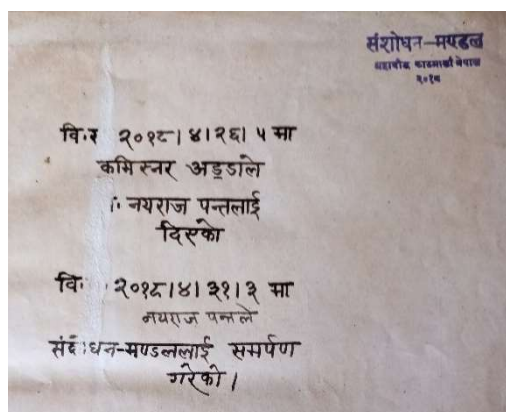 संशोधन-मण्डल
महाबौद्ध काठमाडौं नेपाल
२०१८
वि.सं २०१८।४।२६।५ मा
कमिस्नर अड्डाले
नयराज पन्तलाई
दिएको
वि. २०१८।४।३१।३ मा
नयराज पन्तले
संशोधन-मण्डललाई समर्पण
गरेको।